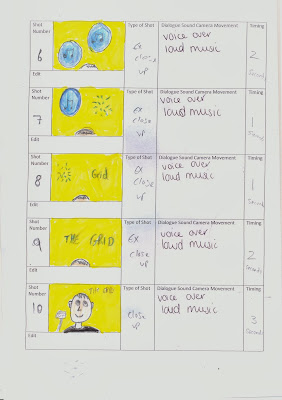 Shot Number
Type of Shot
Dialogue Sound Camera Movement
Timing
6
Ex close up
voice over
loud music
2 seconds
Edit
Shot Number
Type of Shot
Dialogue Sound Camera Movement
Timing
7
Ex close up
voice over
loud music
Edit
Shot Number
Type of Shot
Dialogue Sound Camera Movement
Timing
8
Grid
Ex close up
voice over
loud music
1 second
Edit
Shot Number
Type of Shot
Dialogue Sound Camera Movement
Timing
9
THE GRID
Ex close up
voice over
loud music
2 seconds
Edit
Shot Number
Type of Shot
Dialogue Sound Camera Movement
Timing
10
THE GRID
close up
voice over
loud music
3 seconds
Edit